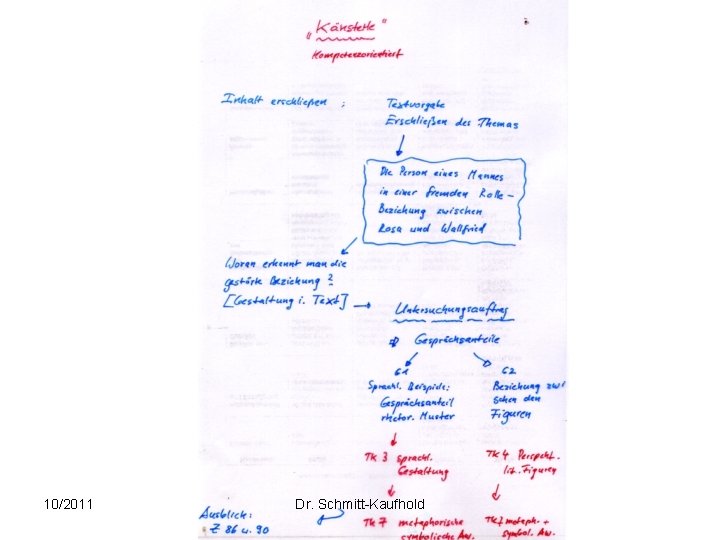 "Känsterle"
Kompetenzorientiert
Inhalt erschließen : Textvorgabe
Erschließen des Themas
Die Person eines Mannes
in einer fremden Rolle –
Beziehung zwischen
Rosa und Wallfried
Woran erkennt man die
gestörte Beziehung ?
[Gestaltung i. Text] → Untersuchungsauftrag
Gesprächsanteile
G1
Sprachl. Beispiele:
Gesprächsanteil
rhetor. Muster
G2
Beziehung zwi
schen den
Figuren
TK 3 sprachl.
Gestaltung
TK 4 Perspekt.
lit. Figuren
TK 7 metaphorische
symbolische Aw.
TK 7 metaph. +
symbol. Aw.
Ausblick:
Z 86 u. 90
10/2011
Dr. Schmitt-Kaufhold